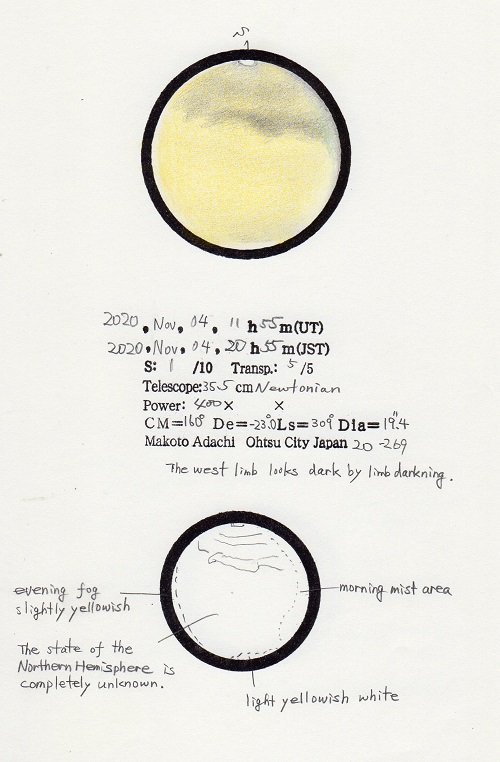 S
2020, Nov, 04, 11 h 55 m (UT)
2020. Nov, 04, 20 h 55 m (JST)
S: 1 /10 Transp.: 5 /5
Telescope: 35.5 cm Newtonian
Power: 400 × ×
CM=160° De=-23.0 Ls=309° Dia=19".4
Makoto Adachi Ohtsu City Japan 20-269
The west limb looks dark by limb darkning.
evening fog
slightly yellowish
morning mist area
The state of the
Northern Hemisphere is
completely unknown.
light yellowish white